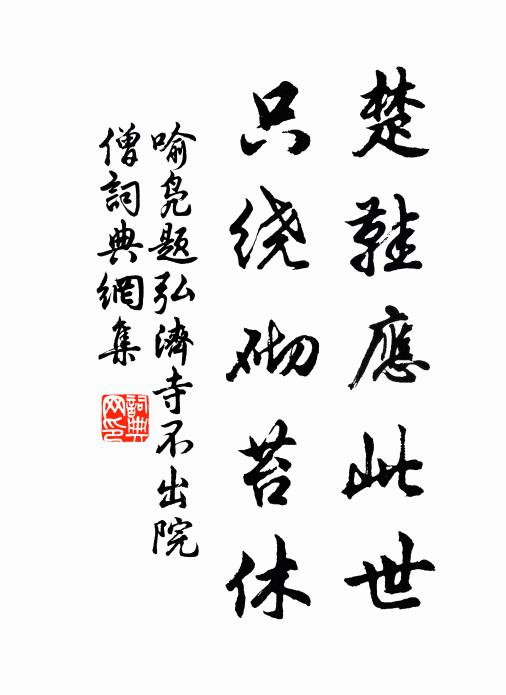 楚鞋應此世
只绕砌苔休
喻凫题弘濟寺不出院
僧詞典網集
詞典网印